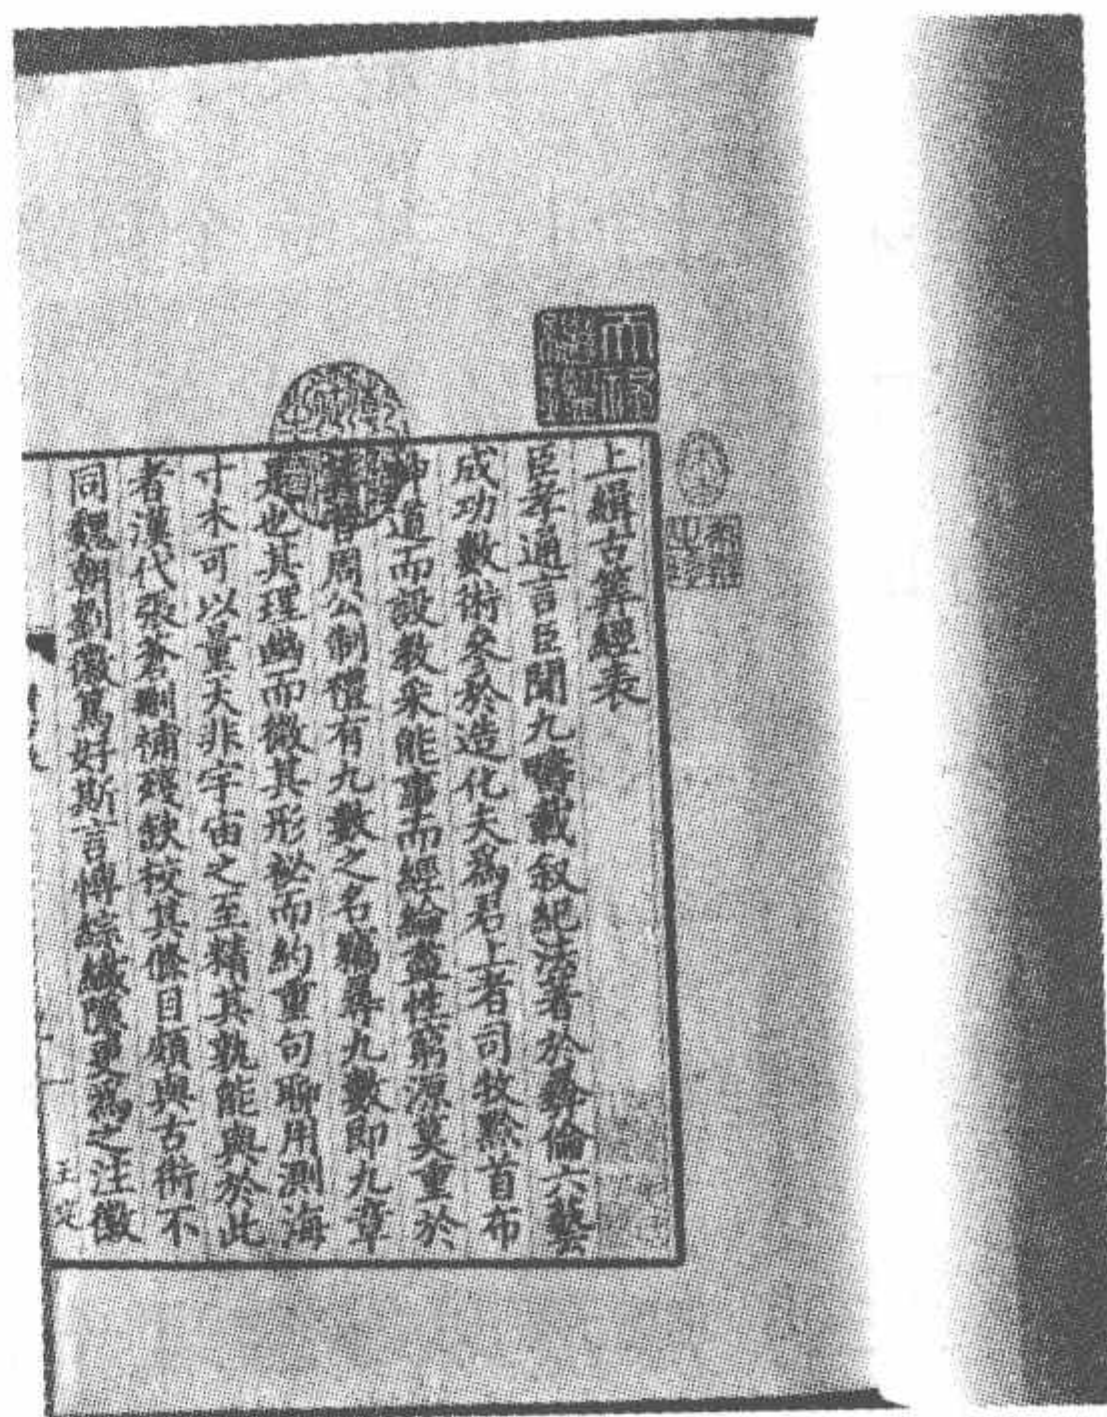 上緝古筭經表
臣孝通言臣聞九疇載叙紀法著於彝倫六藝
成功數術叅於造化夫爲君上者司牧黔首布
神道而設教采能事而經綸盡性窮源莫重於
昔周公制禮有九數之名竊尋九數即九章
是也其理幽而微其形祕而約重句聊用測海
寸木可以量天非宇宙之至精其孰能與於此
者漢代張蒼刪補殘缺校其條目頗與古術不
同魏朝劉徽篤好斯言博綜纎隱更爲之注徽
王定